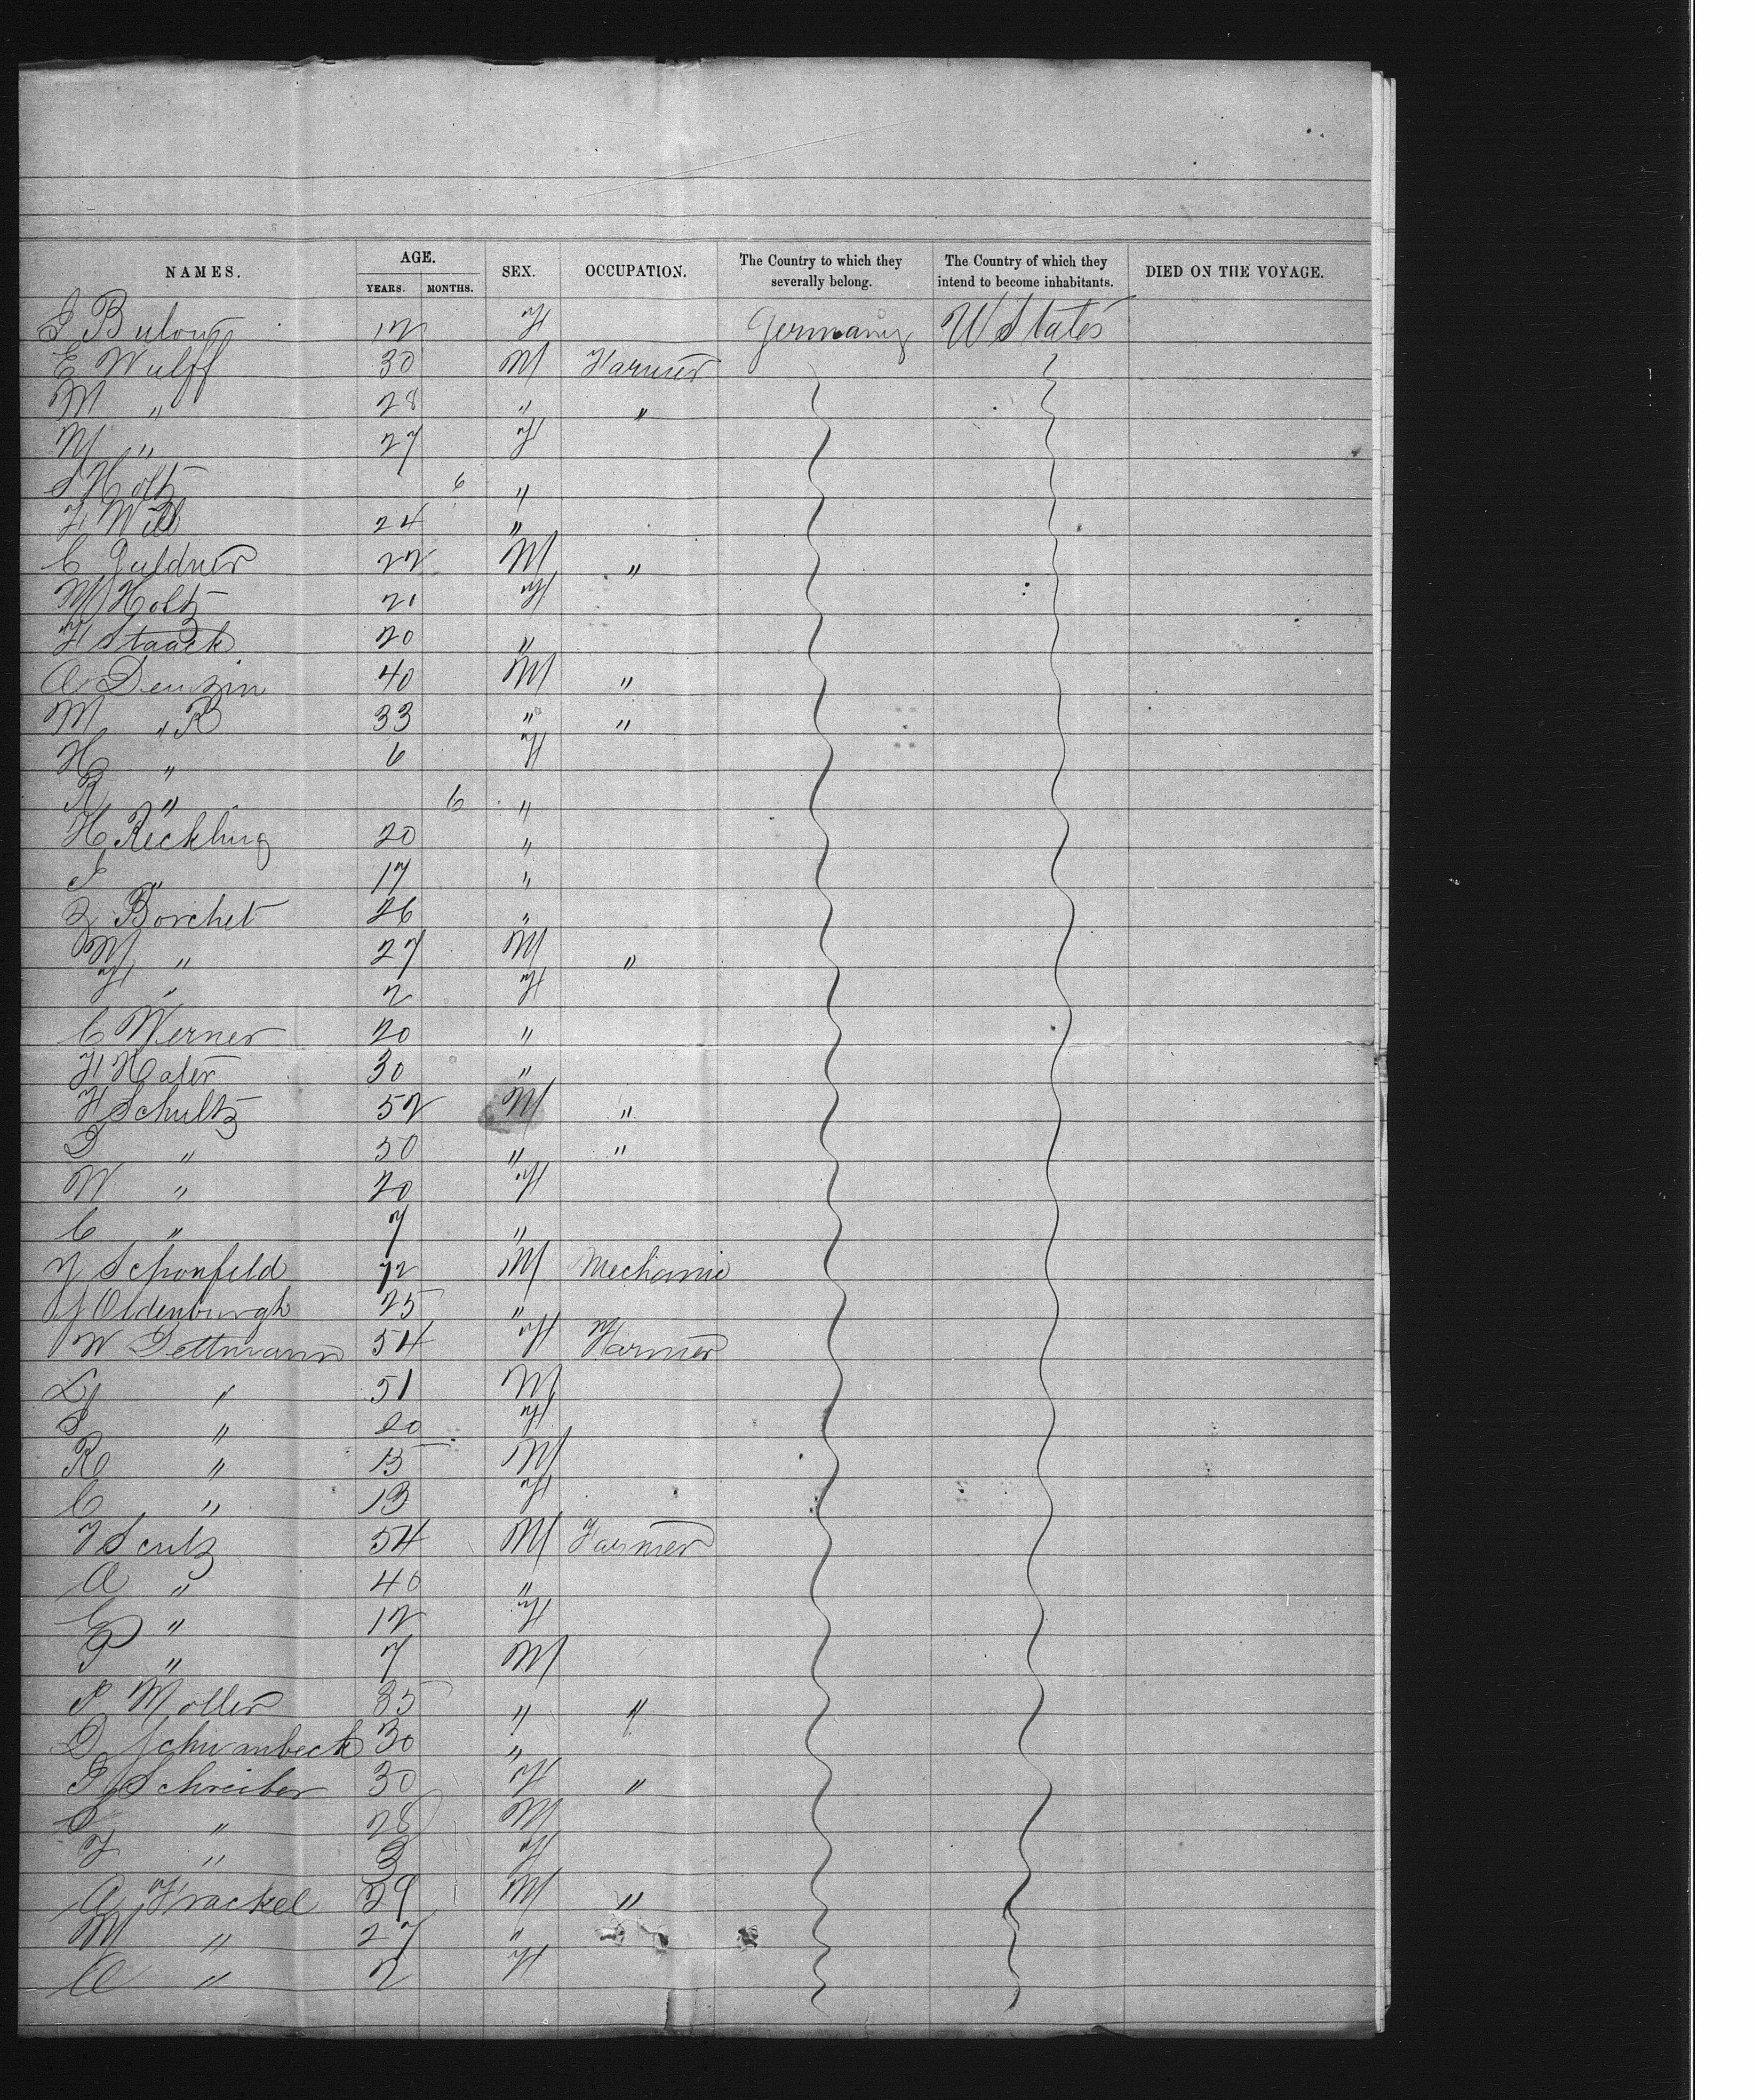 NAMES. AGE. YEARS. MONTHS. SEX. OCCUPATION. The Country to which they severally belong. The Country of which they intend to become inhabitants. DIED ON THE VOYAGE.
S Bulow 12 F Germany U States
E Wulff 30 M Farmer
M " 28 " "
M " 27 F
S Holtz 6 "
F Will 24 "
C Guldner 22 M "
M Holtz 21 F
F Staack 20 "
A Denzin 40 M "
M " R 33 " "
H " 6 F
R " 6 "
H Reckling 20 "
S " 17 "
Z Borchet 26 "
M " 27 M "
F " 2 F
C Werner 20 "
F Hater 30 "
H Schultz 52 M "
D " 50 " "
W " 20 F
C " 7 "
J Schonfeld 72 M Mechanic
J Oldenburgh 25 "
W Dettmann 54 F Farmer
L " 51 M
S " 20 F
R " 15 M
C " 13 F
F Scutz 54 M Farmer
A " 40 "
E " 12 F
P " 7 M
P Moller 35 " "
D Schwanbeck 30 "
S Schreiber 30 F "
S " 28 M
F " 3 F
A Frackel 29 M "
M " 27 "
A " 2 F